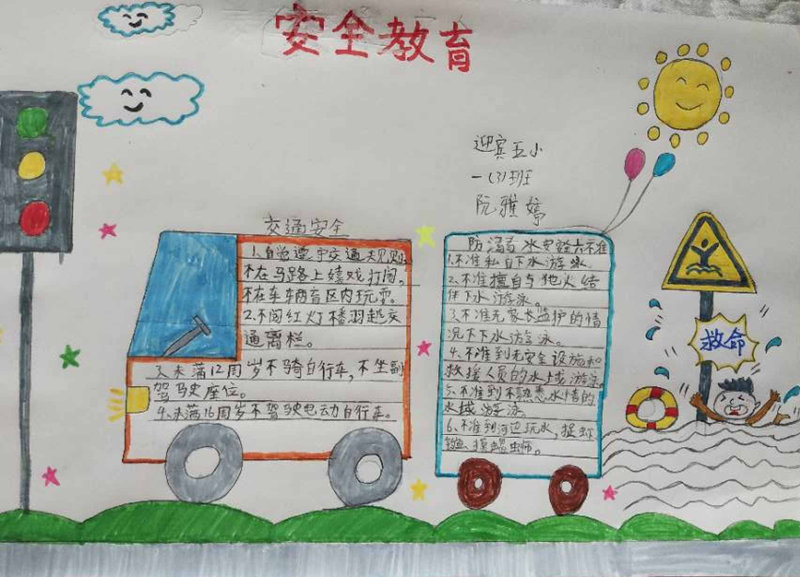 安全教育
迎宾五小
一(3)班
阮雅婷
交通安全
1.自觉遵守交通规则
不在马路上嬉戏打闹,
不在车辆盲区内玩耍.
2.不闯红灯
通隔离栏。
3.未满12周岁不骑自行车,不坐副
驾驶座位。
4.未满16周岁不驾驶电动自行车。
防溺水安全六不准
1.不准私自下水游泳.
2.不准擅自与他人结
伴下水游泳。
3.不准无家长监护的情
况下下水游泳.
4.不准到无安全设施和
救援人员的水域游泳
5.不准到不熟悉水情的
水域游泳
6.不准到河边玩水,捉
救命